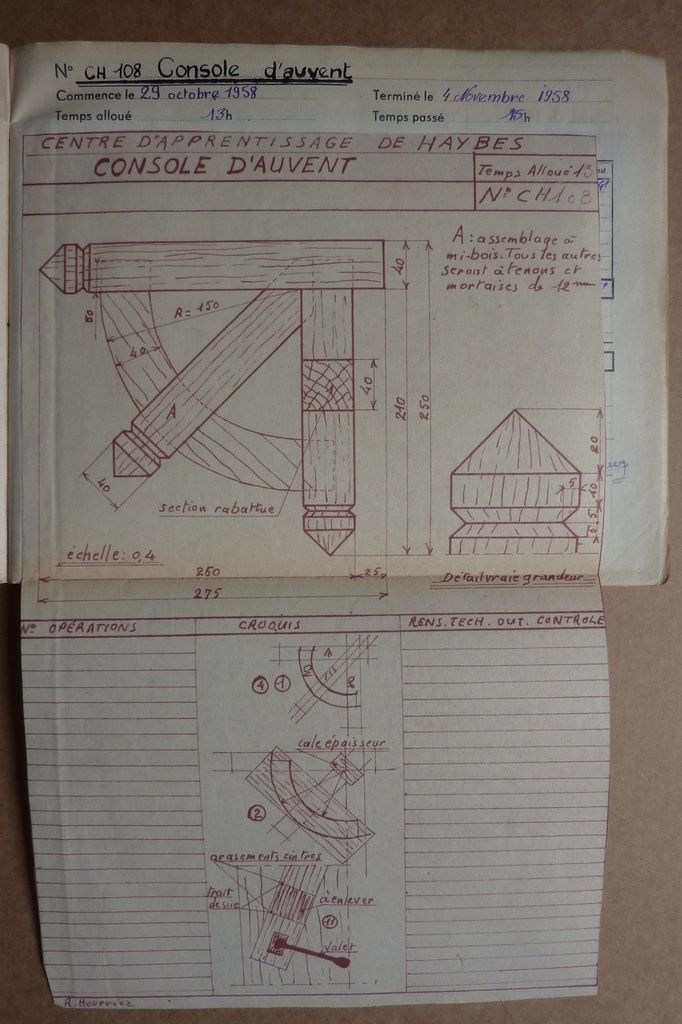 N° CH 108 Console d'auvent
Commence le 29 octobre 1958
Terminé le 4 Novembre 1958
Temps alloué 13h
Temps passé 15h
CENTRE D'APPRENTISSAGE DE HAYBES
CONSOLE D'AUVENT
Temps Alloué 13
N° CH108
A: assemblage à
mi-bois. Tous les autres
seront à tenons et
mortaises de 12 mm
40
50
R=150
40
40
210
250
A
40
section rabattue
20
5
10
5
échelle: 0,4
Détail vraie grandeur
250
25
275
N° OPÉRATIONS
CROQUIS
RENS. TECH. OUT. CONTROLE
4 1
cale épaisseur
2
arasements cintres
trait
de scie
à enlever
11
valet